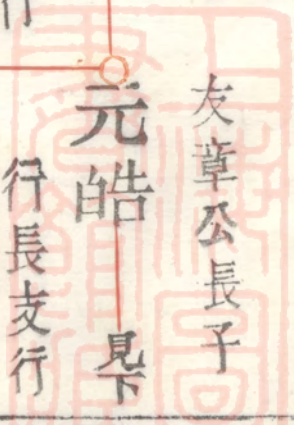 友章公長子
元皓
見下
行長支行